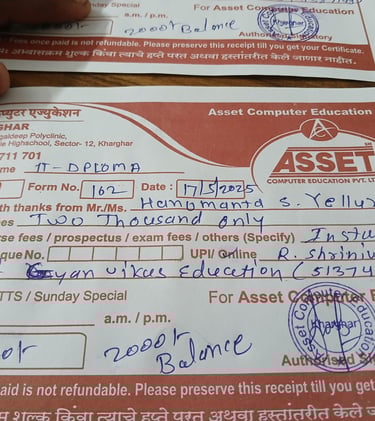 Sunday Special For Asset Computer Education
a.m. / p.m.
2000/- Balance Kharghar
Fees once is not refundable. Please preserve this receipt till you get your Certificate.
अभ्यासक्रम शुल्क किंवा त्याचे हप्ते परत अथवा हस्तांतरीत केले जाणार नाहीत.
एज्युकेशन Asset Computer Education
GHAR
Polyclinic,
Highschool, Sector- 12, Kharghar
711 701 ASSET
me IT-DPLOMA COMPUTER EDUCATION PVT. LT
Form No. 162 Date : 17/5/2025
th thanks from Mr./Ms. Hanamanta S. Yellur
es Two Thousand only
se fees / prospectus / exam fees / others (Specify) Insta
que No. UPI/Online R. Shriniv
Gyan Vikas Education (51374
TTS / Sunday Special For Asset Computer E
a.m. / p.m. Kharghar
2000/-
Balance
Authorised Si
paid is not refundable. Please preserve this receipt till you get
शुल्क किंवा त्याचे हप्ते परत अथवा हस्तांतरीत केले